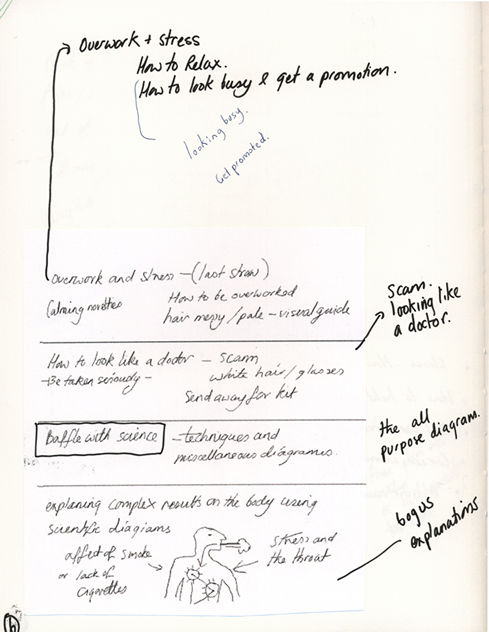 Overwork + stress
How to Relax.
How to look busy & get a promotion.
looking busy.
Get promoted.
overwork and stress - (last straw)
Calming novelties
How to be overworked
hair messy / pale - visual guide
Scam.
looking like
a doctor.
How to look like a doctor - scam
- to be taken seriously -
white hair / glasses
Send away for kit
the all
purpose diagram.
Baffle with science
- techniques and
miscellaneous diagrams.
explaining complex results on the body using
scientific diagrams
affect of smoke
or lack of
cigarettes
stress and
the throat
bogus
explanations